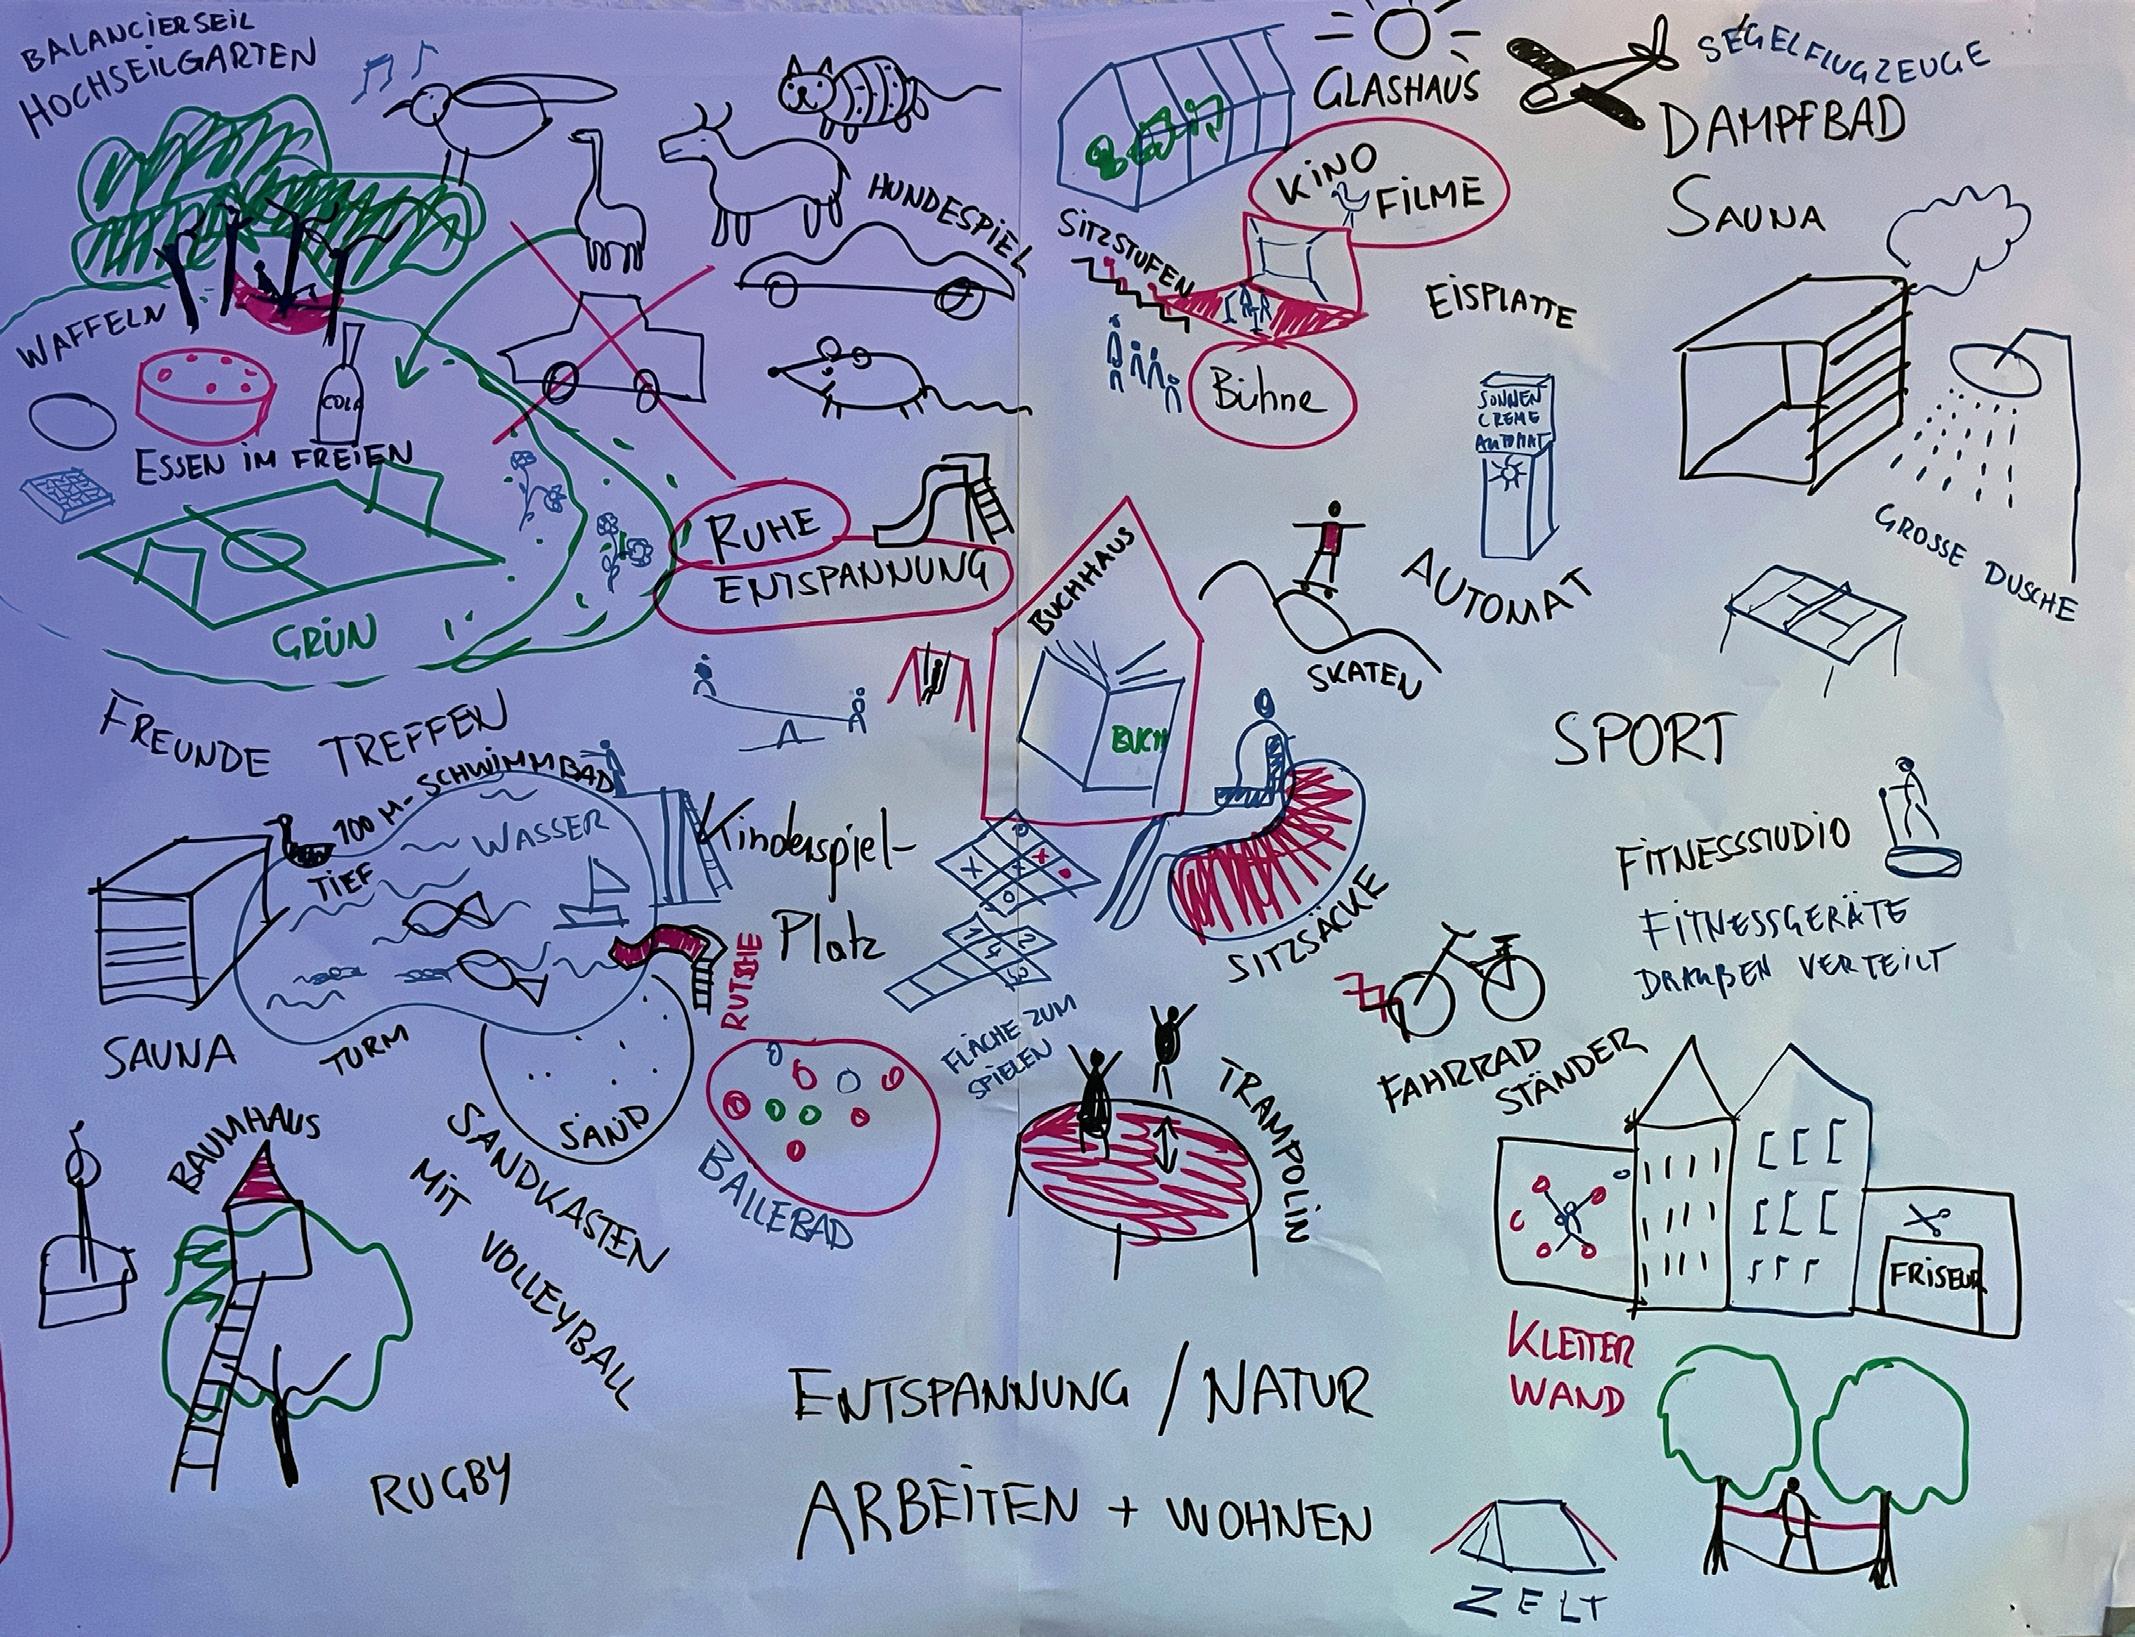 BALANCIERSEIL
HOCHSEILGARTEN
HUNDESPIEL
WAFFELN
COLA
ESSEN IM FREIEN
GRÜN
RUHE
ENTSPANNUNG
GLASHAUS
SEGELFLUGZEUGE
DAMPFBAD
SAUNA
KINO
FILME
SITZSTUFEN
Bühne
EISPLATTE
SONNEN
CREME
AUTOMAT
AUTOMAT
GROSSE DUSCHE
BUCHHAUS
BUCH
SKATEN
SPORT
FREUNDE TREFFEN
100 M-SCHWIMMBAD
TIEF
WASSER
Kinderspiel-
Platz
RUTSCHE
SAUNA
TURM
SAND
SANDKASTEN
MIT VOLLEYBALL
BÄLLEBAD
FLÄCHE ZUM
SPIELEN
SITZSÄCKE
TRAMPOLIN
FITNESSSTUDIO
FITNESSGERÄTE
DRAUßEN VERTEILT
FAHRRAD
STÄNDER
FRISEUR
KLETTER
WAND
BAUMHAUS
RUGBY
ENTSPANNUNG / NATUR
ARBEITEN + WOHNEN
ZELT